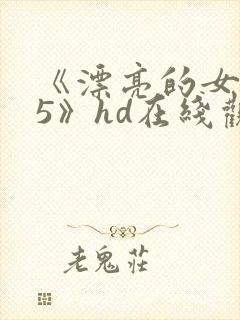 《漂亮的女
5》hd在綫觀
老鬼莊